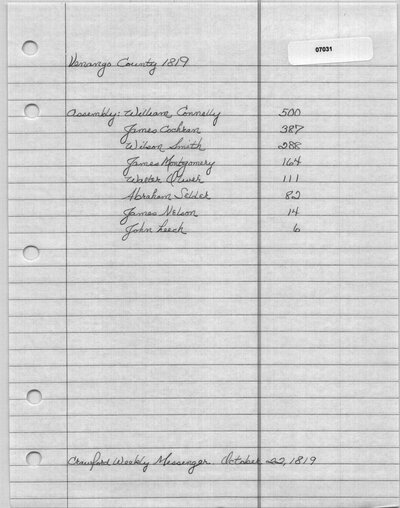 07031
Venango County 1819
Assembly: William Connelly 500
James Cochran 387
Wilson Smith 288
James Montgomery 164
Walter Oliver 111
Abraham Selder 82
James Nelson 14
John Leech 6
Crawford Weekly Messenger. October 22, 1819